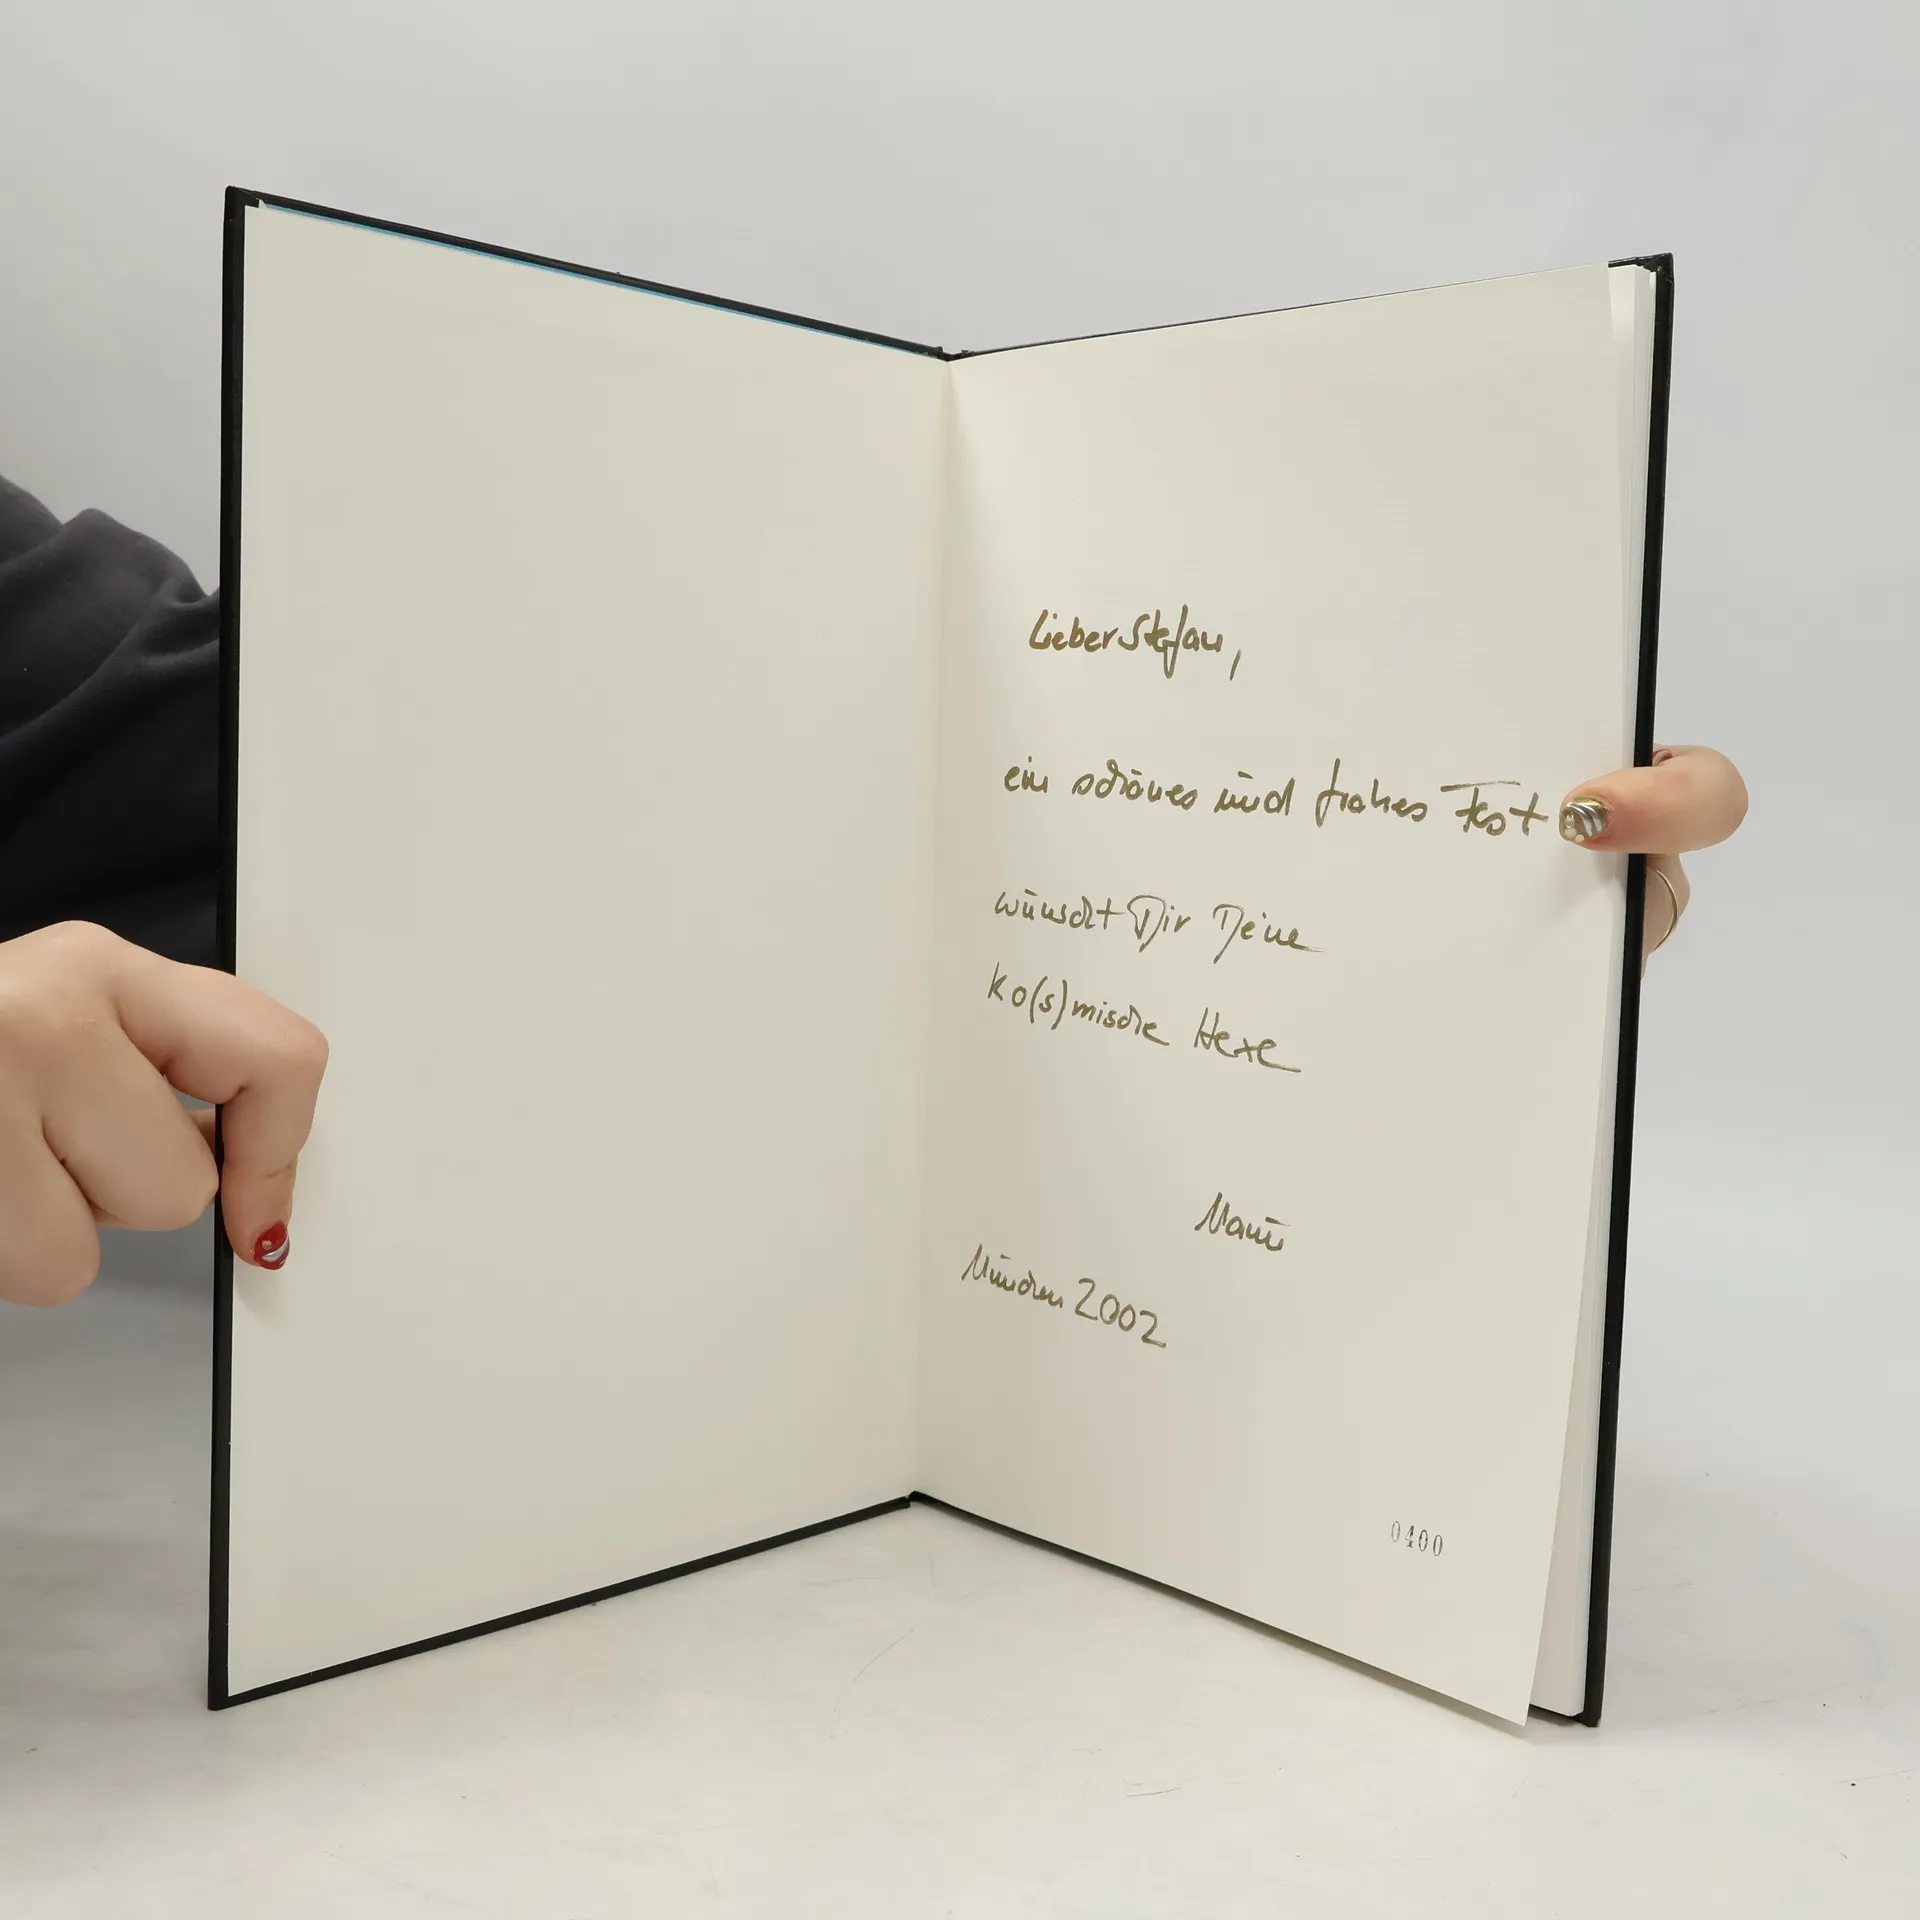 Lieber Stefan,
ein schönes und frohes Fest
wünscht Dir Deine
ko(s)mische Hexe
Manu
München 2002
0400